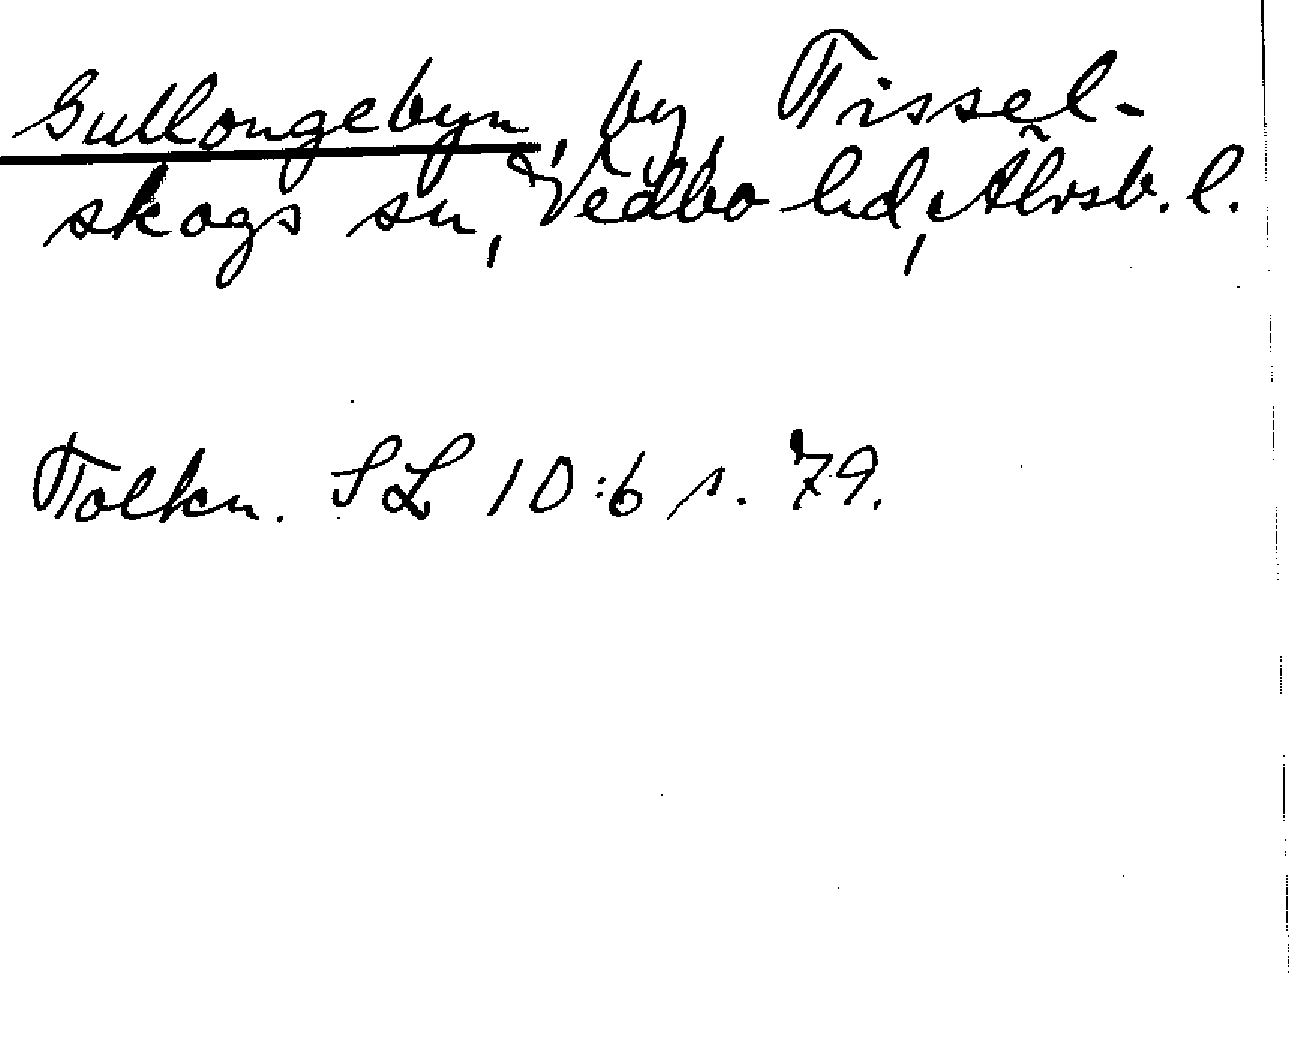 Gullongebyn, by, Tissel-
skogs sn, Vedbo hd, Älvsb. l.
Tolkn. SL 10:6 s. 79.